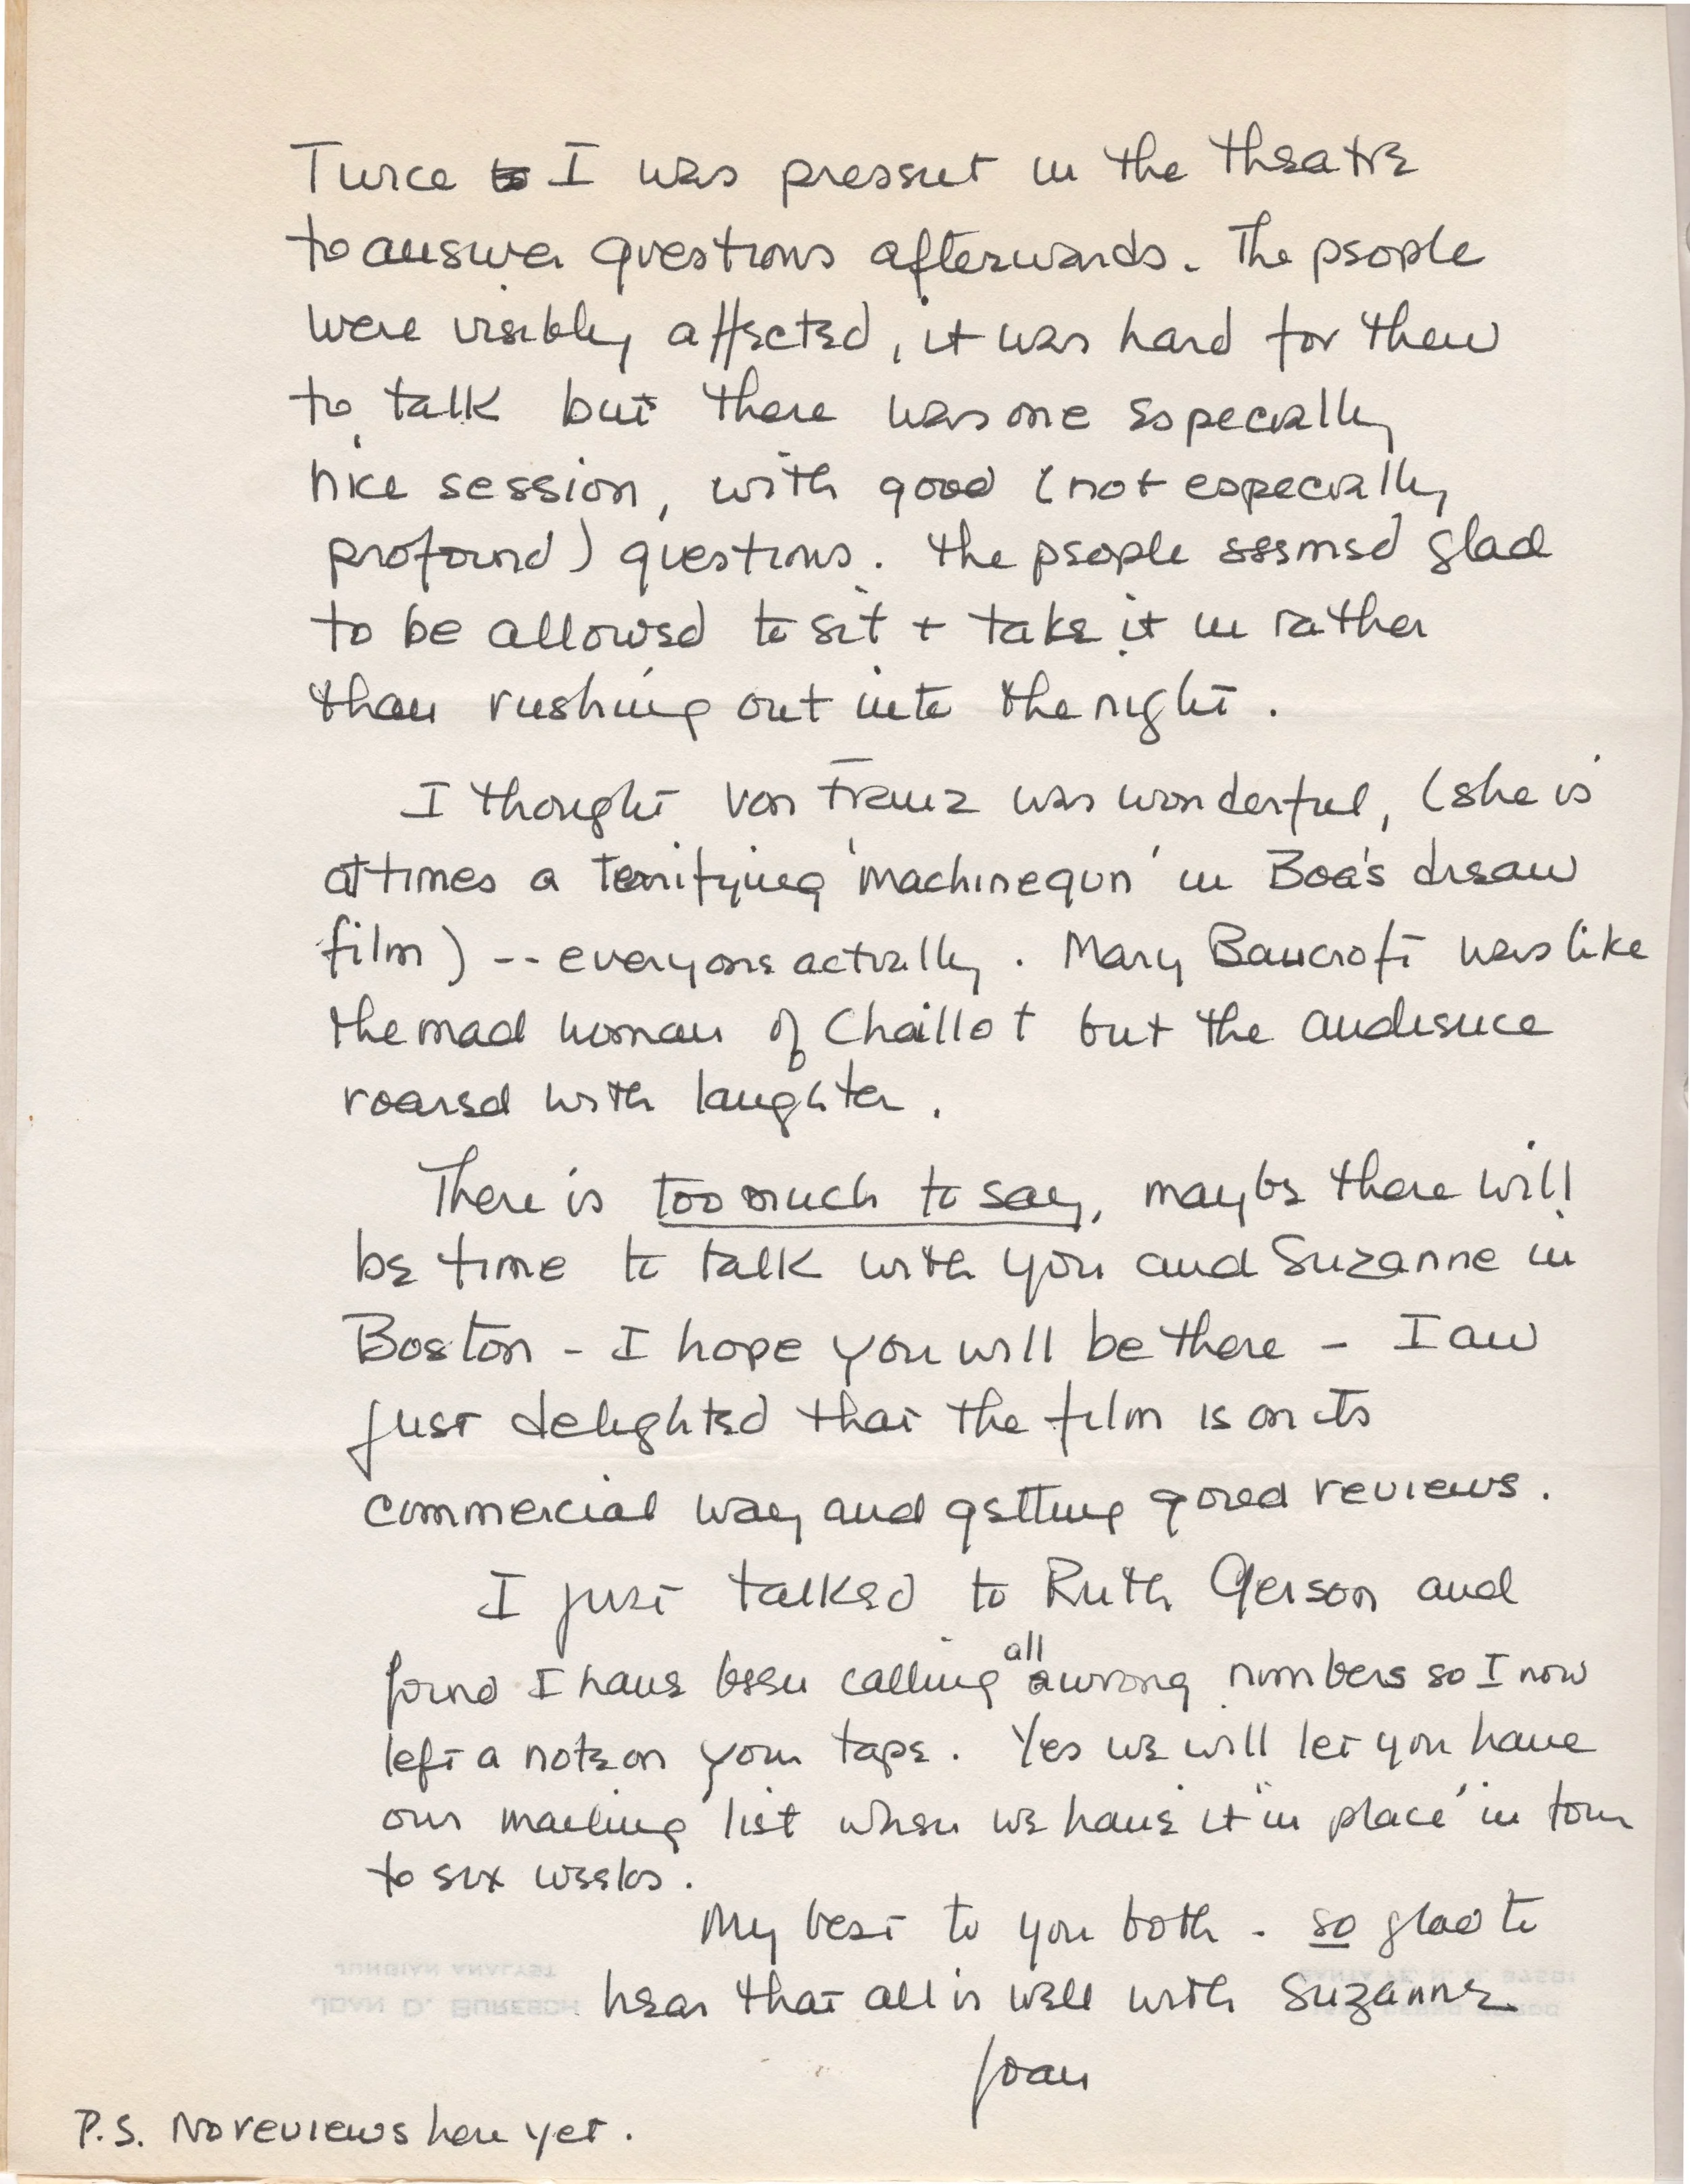 Twice to I was present in the theatre
to answer questions afterwards. The people
were visibly affected, it was hard for them
to talk but there was one especially
nice session, with good (not especially
profound) questions. The people seemed glad
to be allowed to sit + take it in rather
than rushing out into the night.
I thought von Franz was wonderful, (she is
at times a terrifying 'machinegun' in Boa's dream
film) -- everyone actually. Mary Bancroft was like
the mad woman of Chaillot but the audience
roared with laughter.
There is too much to say, maybe there will
be time to talk with you and Suzanne in
Boston - I hope you will be there - I am
just delighted that the film is on its
commercial way and getting good reviews.
I just talked to Ruth Gerson and
found I have been calling all wrong numbers so I now
left a note on your tape. Yes we will let you have
our mailing list when we have it "in place" in four
to six weeks.
My best to you both - so glad to
hear that all is well with Suzanne.
Joan
JUNGIAN ANALYST
JOAN D. BURESCH
P.S. No reviews here yet.